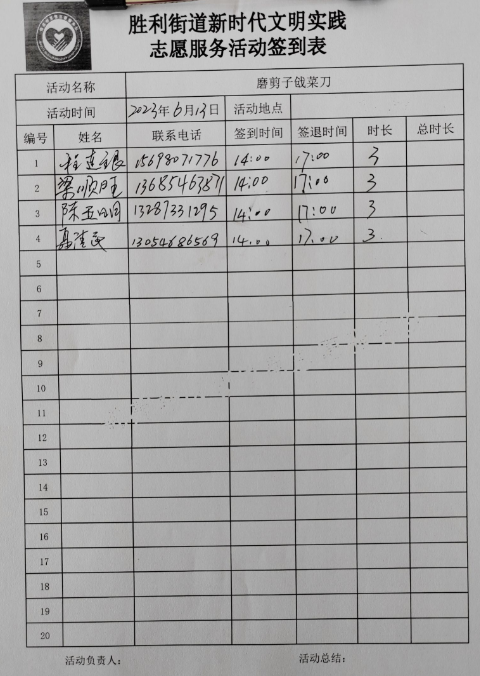 胜利街道新时代文明实践
志愿服务活动签到表
活动名称 磨剪子戗菜刀
活动时间 2023年6月13日 活动地点
编号 姓名 联系电话 签到时间 签退时间 时长 总时长
1 程连银 15698071776 14:00 17:00 3
2 梁顺旺 13685463871 14:00 17:00 3
3 陈五四 13287331295 14:00 17:00 3
4 13054686569 14:00 17:00 3
5
6
7
8
9
10
11
12
13
14
15
16
17
18
19
20
活动负责人： 活动总结：